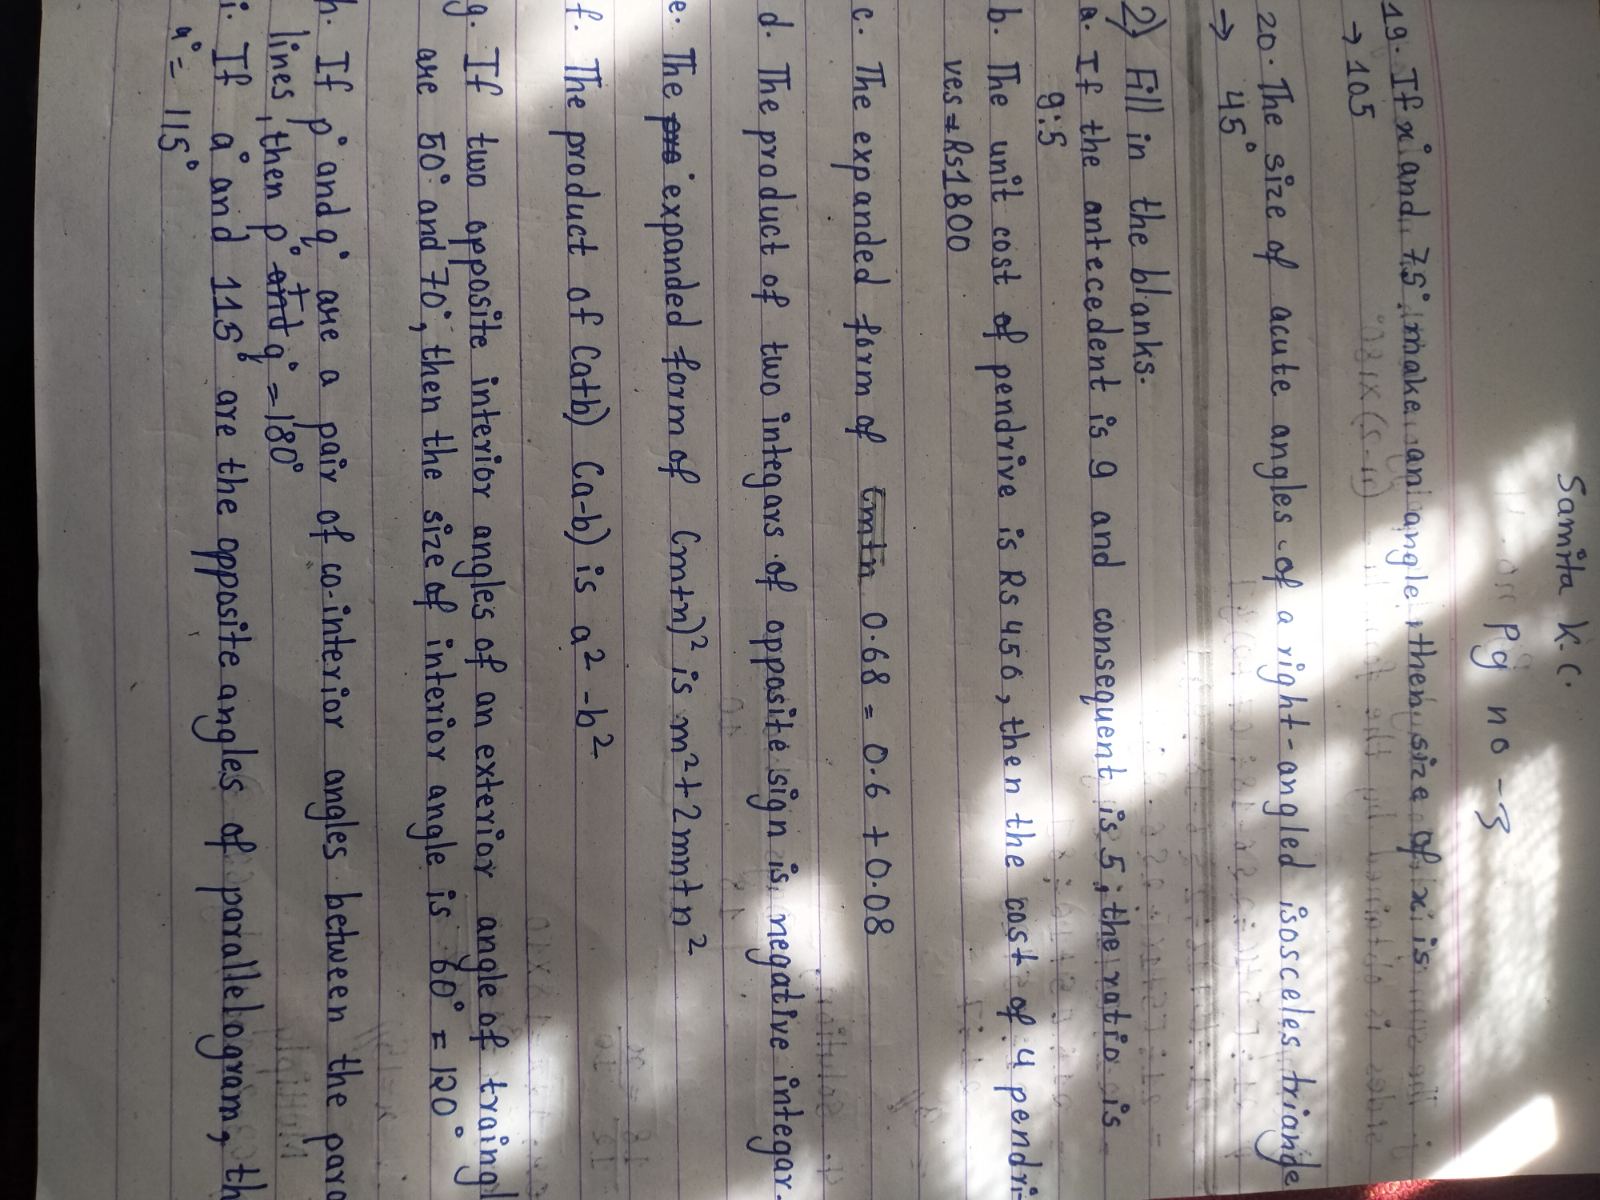 Samita K.C.
Pg no - 3
19. If x° and 75° make an angle, then size of x is
→ 105
20. The size of acute angles of a right-angled isosceles triangle
→ 45°
2) Fill in the blanks.
a. If the antecedent is 9 and consequent is 5, the ratio is
9:5
b. The unit cost of pendrive is Rs 450, then the cost of 4 pendri-
ves = Rs1800
c. The expanded form of 0.68 = 0.6 + 0.08
d. The product of two integars of opposite sign is negative integar.
e. The expanded form of (m+n)² is m²+2mn+n²
f. The product of (a+b) (a-b) is a²-b²
g. If two opposite interior angles of an exterior angle of traingl
are 50° and 70°, then the size of interior angle is 60° = 120°
h. If p° and q° are a pair of co-interior angles between the para
lines, then p° + q° = 180°
i. If a° and 115° are the opposite angles of parallelogram, th
a° = 115°